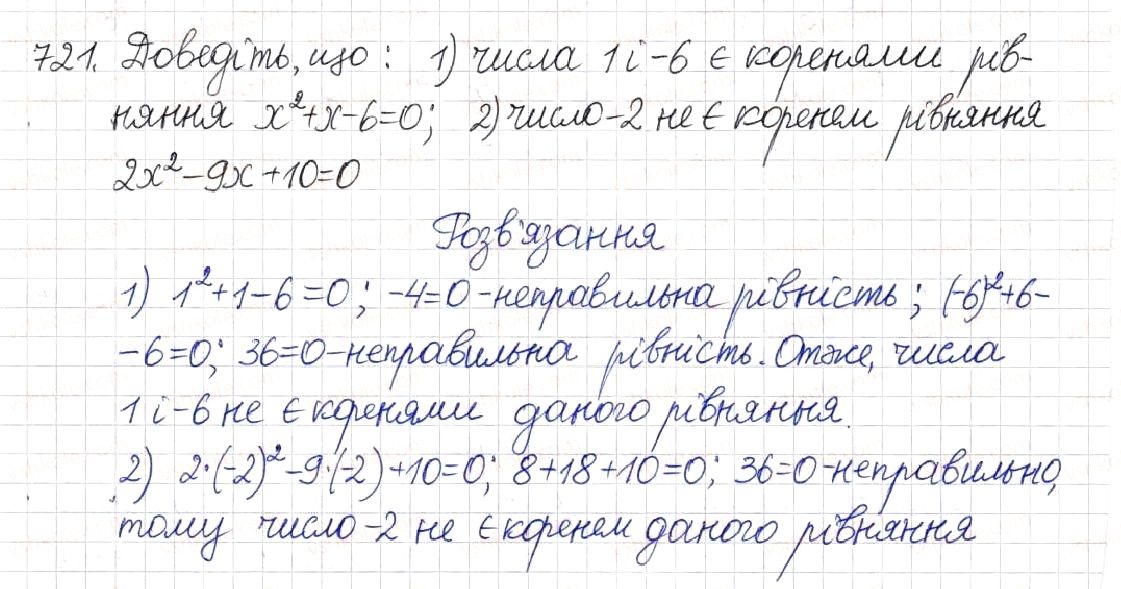 721. Доведіть, що: 1) числа 1 і -6 є коренями рів-
няння x²+x-6=0; 2) число -2 не є коренем рівняння
2x²-9x+10=0
Розв'язання
1) 1²+1-6=0; -4=0 - неправильна рівність; (-6)²+6-
-6=0; 36=0 - неправильна рівність. Отже, числа
1 і -6 не є коренями даного рівняння.
2) 2·(-2)²-9·(-2)+10=0; 8+18+10=0; 36=0 - неправильно,
тому число -2 не є коренем даного рівняння